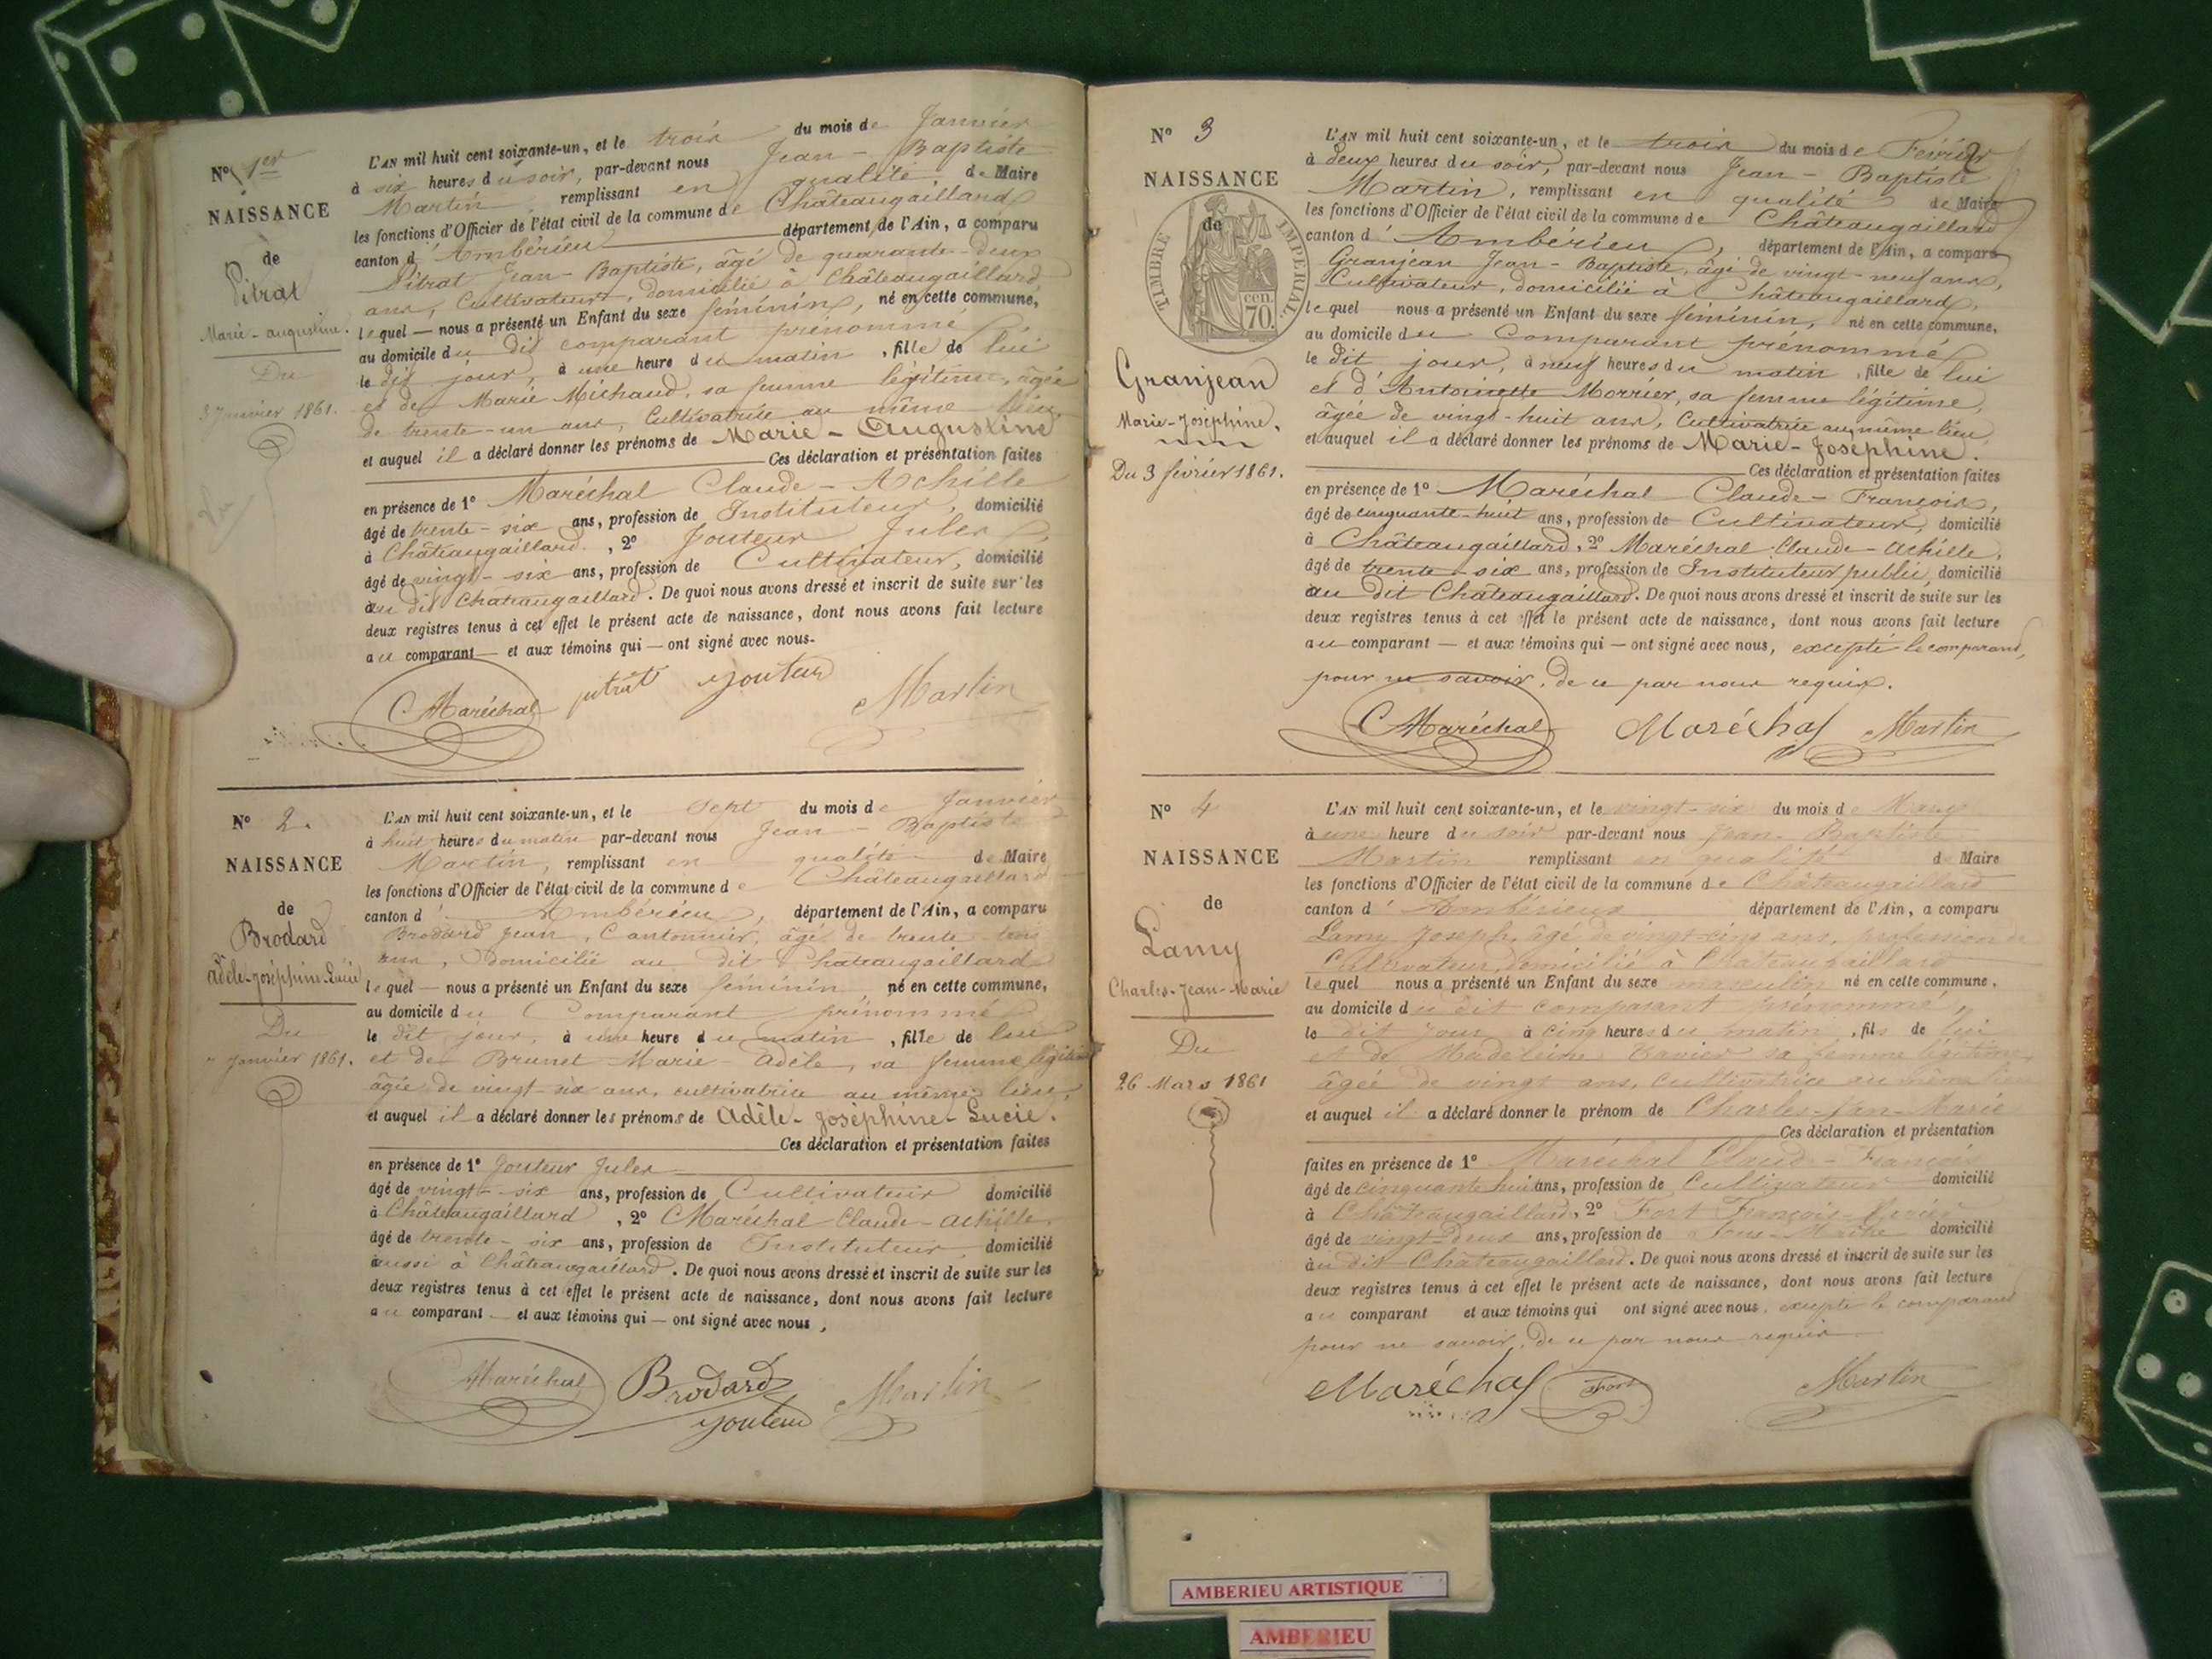 N° 1er
NAISSANCE
de
Pitrat
Marie-augustine.
Du
3 Janvier 1861.
Vu
L'AN mil huit cent soixante-un, et le trois du mois de Janvier
à six heures du soir, par-devant nous Jean-Baptiste
Martin remplissant en qualité de Maire
les fonctions d'Officier de l'état civil de la commune de Châteaugaillard
canton d'Ambérieu département de l'Ain, a comparu
Pitrat Jean-Baptiste, âgé de quarante-deux
ans, Cultivateur, domicilié à Châteaugaillard,
lequel — nous a présenté un Enfant du sexe féminin, né en cette commune,
au domicile du dit comparant prénommé
le dit jour, à une heure du matin, fille de lui
et de Marie Michaud, sa femme légitime, âgée
de trente-un ans, Cultivatrice au même lieu,
et auquel il a déclaré donner les prénoms de Marie-Augustine
Ces déclaration et présentation faites
en présence de 1° Maréchal Claude-Achille
âgé de trente-six ans, profession de Instituteur, domicilié
à Châteaugaillard, 2° Jouteur Jules
âgé de vingt-six ans, profession de Cultivateur, domicilié
au dit Chateaugaillard. De quoi nous avons dressé et inscrit de suite sur les
deux registres tenus à cet effet le présent acte de naissance, dont nous avons fait lecture
au comparant — et aux témoins qui — ont signé avec nous.
CMaréchal pitrat jouteur Martin
N° 2.
NAISSANCE
de
Brodard
adèle-joséphine-Lucie
Du
7 Janvier 1861.
L'AN mil huit cent soixante-un, et le Sept du mois de Janvier
à huit heures du matin par-devant nous Jean-Baptiste
Martin, remplissant en qualité de Maire
les fonctions d'Officier de l'état civil de la commune de Châteaugaillard
canton d'Ambérieu, département de l'Ain, a comparu
Brodard Jean, Cantonnier, âgé de trente-
ans, Domicilié au dit Chateaugaillard
lequel — nous a présenté un Enfant du sexe féminin né en cette commune,
au domicile du Comparant prénommé
le dit jour, à une heure du matin, fille de lui
et de Brunet Marie-Adèle, sa femme légitime
âgée de vingt-six ans, cultivatrice au même lieu,
et auquel il a déclaré donner les prénoms de Adèle-Joséphine-Lucie.
Ces déclaration et présentation faites
en présence de 1° Jouteur Jules
âgé de vingt-six ans, profession de Cultivateur domicilié
à Châteaugaillard, 2° Maréchal Claude-achille,
âgé de trente-six ans, profession de Instituteur domicilié
aussi à Châteaugaillard. De quoi nous avons dressé et inscrit de suite sur les
deux registres tenus à cet effet le présent acte de naissance, dont nous avons fait lecture
au comparant — et aux témoins qui — ont signé avec nous,
CMaréchal Brodard Martin
jouteur
2
N° 3
NAISSANCE
de
TIMBRE IMPERIAL
70 cen.
Granjean
Marie-Joséphine.
Du 3 février 1861.
L'AN mil huit cent soixante-un, et le trois du mois de Février
à deux heures du soir, par-devant nous Jean-Baptiste
Martin, remplissant en qualité de Maire
les fonctions d'Officier de l'état civil de la commune de Châteaugaillard
canton d'Ambérieu, département de l'Ain, a comparu
Granjean Jean-Baptiste, âgé de vingt-neuf ans,
Cultivateur, domicilié à Châteaugaillard,
lequel nous a présenté un Enfant du sexe féminin, né en cette commune,
au domicile du Comparant prénommé
le dit jour, à neuf heures du matin, fille de lui
et d'Antoinette Morrier, sa femme légitime,
âgée de vingt-huit ans, Cultivatrice au même lieu,
et auquel il a déclaré donner les prénoms de Marie-Joséphine.
Ces déclaration et présentation faites
en présence de 1° Maréchal Claude-François,
âgé de cinquante-huit ans, profession de Cultivateur, domicilié
à Châteaugaillard, 2° Maréchal Claude-achille,
âgé de trente-six ans, profession de Instituteur public, domicilié
au dit Châteaugaillard. De quoi nous avons dressé et inscrit de suite sur les
deux registres tenus à cet effet le présent acte de naissance, dont nous avons fait lecture
au comparant — et aux témoins qui — ont signé avec nous, excepté le comparant,
pour ne savoir, de ce par nous requis.
CMaréchal Maréchal Martin
N° 4
NAISSANCE
de
Lamy
Charles-Jean-Marie
Du
26 Mars 1861
L'AN mil huit cent soixante-un, et le vingt-six du mois de Mars
à une heure du soir par-devant nous Jean-Baptiste
Martin remplissant en qualité de Maire
les fonctions d'Officier de l'état civil de la commune de Châteaugaillard
canton d'Ambérieux département de l'Ain, a comparu
Lamy Joseph, âgé de vingt-cinq ans, profession de
Cultivateur, domicilié à Chateaugaillard
lequel nous a présenté un Enfant du sexe masculin né en cette commune,
au domicile du dit comparant prénommé,
le dit jour à cinq heures du matin, fils de lui
et de Madeleine sa femme légitime,
âgée de vingt ans, cultivatrice au même lieu
et auquel il a déclaré donner le prénom de Charles-Jean-Marie
Ces déclaration et présentation
faites en présence de 1° Maréchal Claude-François
âgé de cinquante huit ans, profession de Cultivateur domicilié
à Châteaugaillard, 2° Fort François-
âgé de vingt-deux ans, profession de domicilié
au dit Châteaugaillard. De quoi nous avons dressé et inscrit de suite sur les
deux registres tenus à cet effet le présent acte de naissance, dont nous avons fait lecture
au comparant et aux témoins qui ont signé avec nous, excepté le comparant
pour ne savoir, de ce par nous requis
Maréchal Fort Martin
AMBERIEU ARTISTIQUE
AMBERIEU